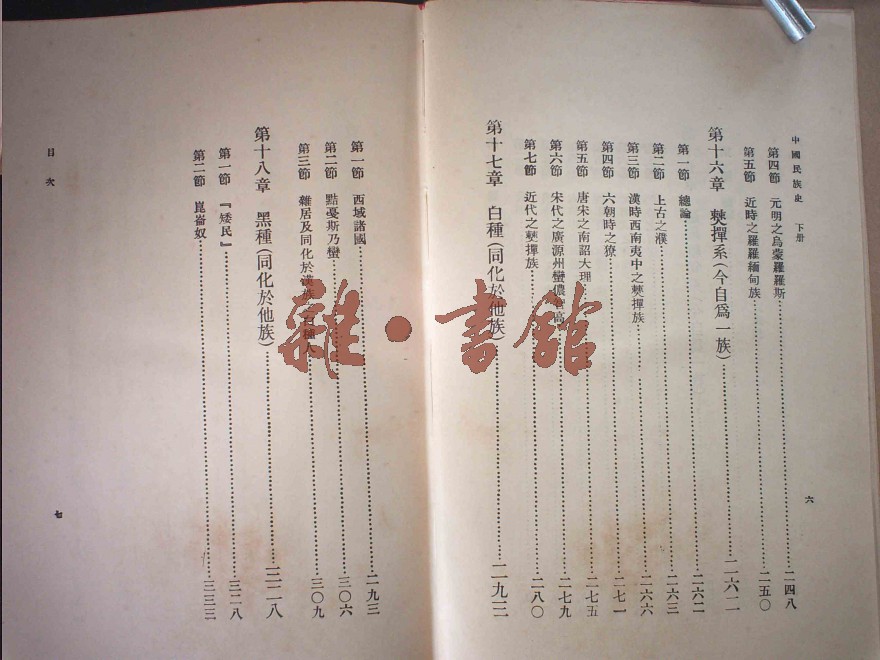 中國民族史　下冊
第四節　元明之烏蒙羅羅斯……二四八
第五節　近時之羅羅緬甸族……二五〇
第十六章　僰撣系(今自爲一族)……二六二
第一節　總論……二六二
第二節　上古之濮……二六三
第三節　漢時西南夷中之僰撣族……二六六
第四節　六朝時之獠……二七一
第五節　唐宋之南詔大理……二七五
第六節　宋代之廣源州蠻儂智高……二七九
第七節　近代之僰撣族……二八〇
第十七章　白種(同化於他族)……二九三
六
第一節　西域諸國……二九三
第二節　黠戛斯乃蠻……三〇六
第三節　雜居及同化於漢族之白種人……三〇九
第十八章　黑種(同化於他族)……三二八
第一節　『矮民』……三二八
第二節　崑崙奴……三三三
目次
七
雜·書館